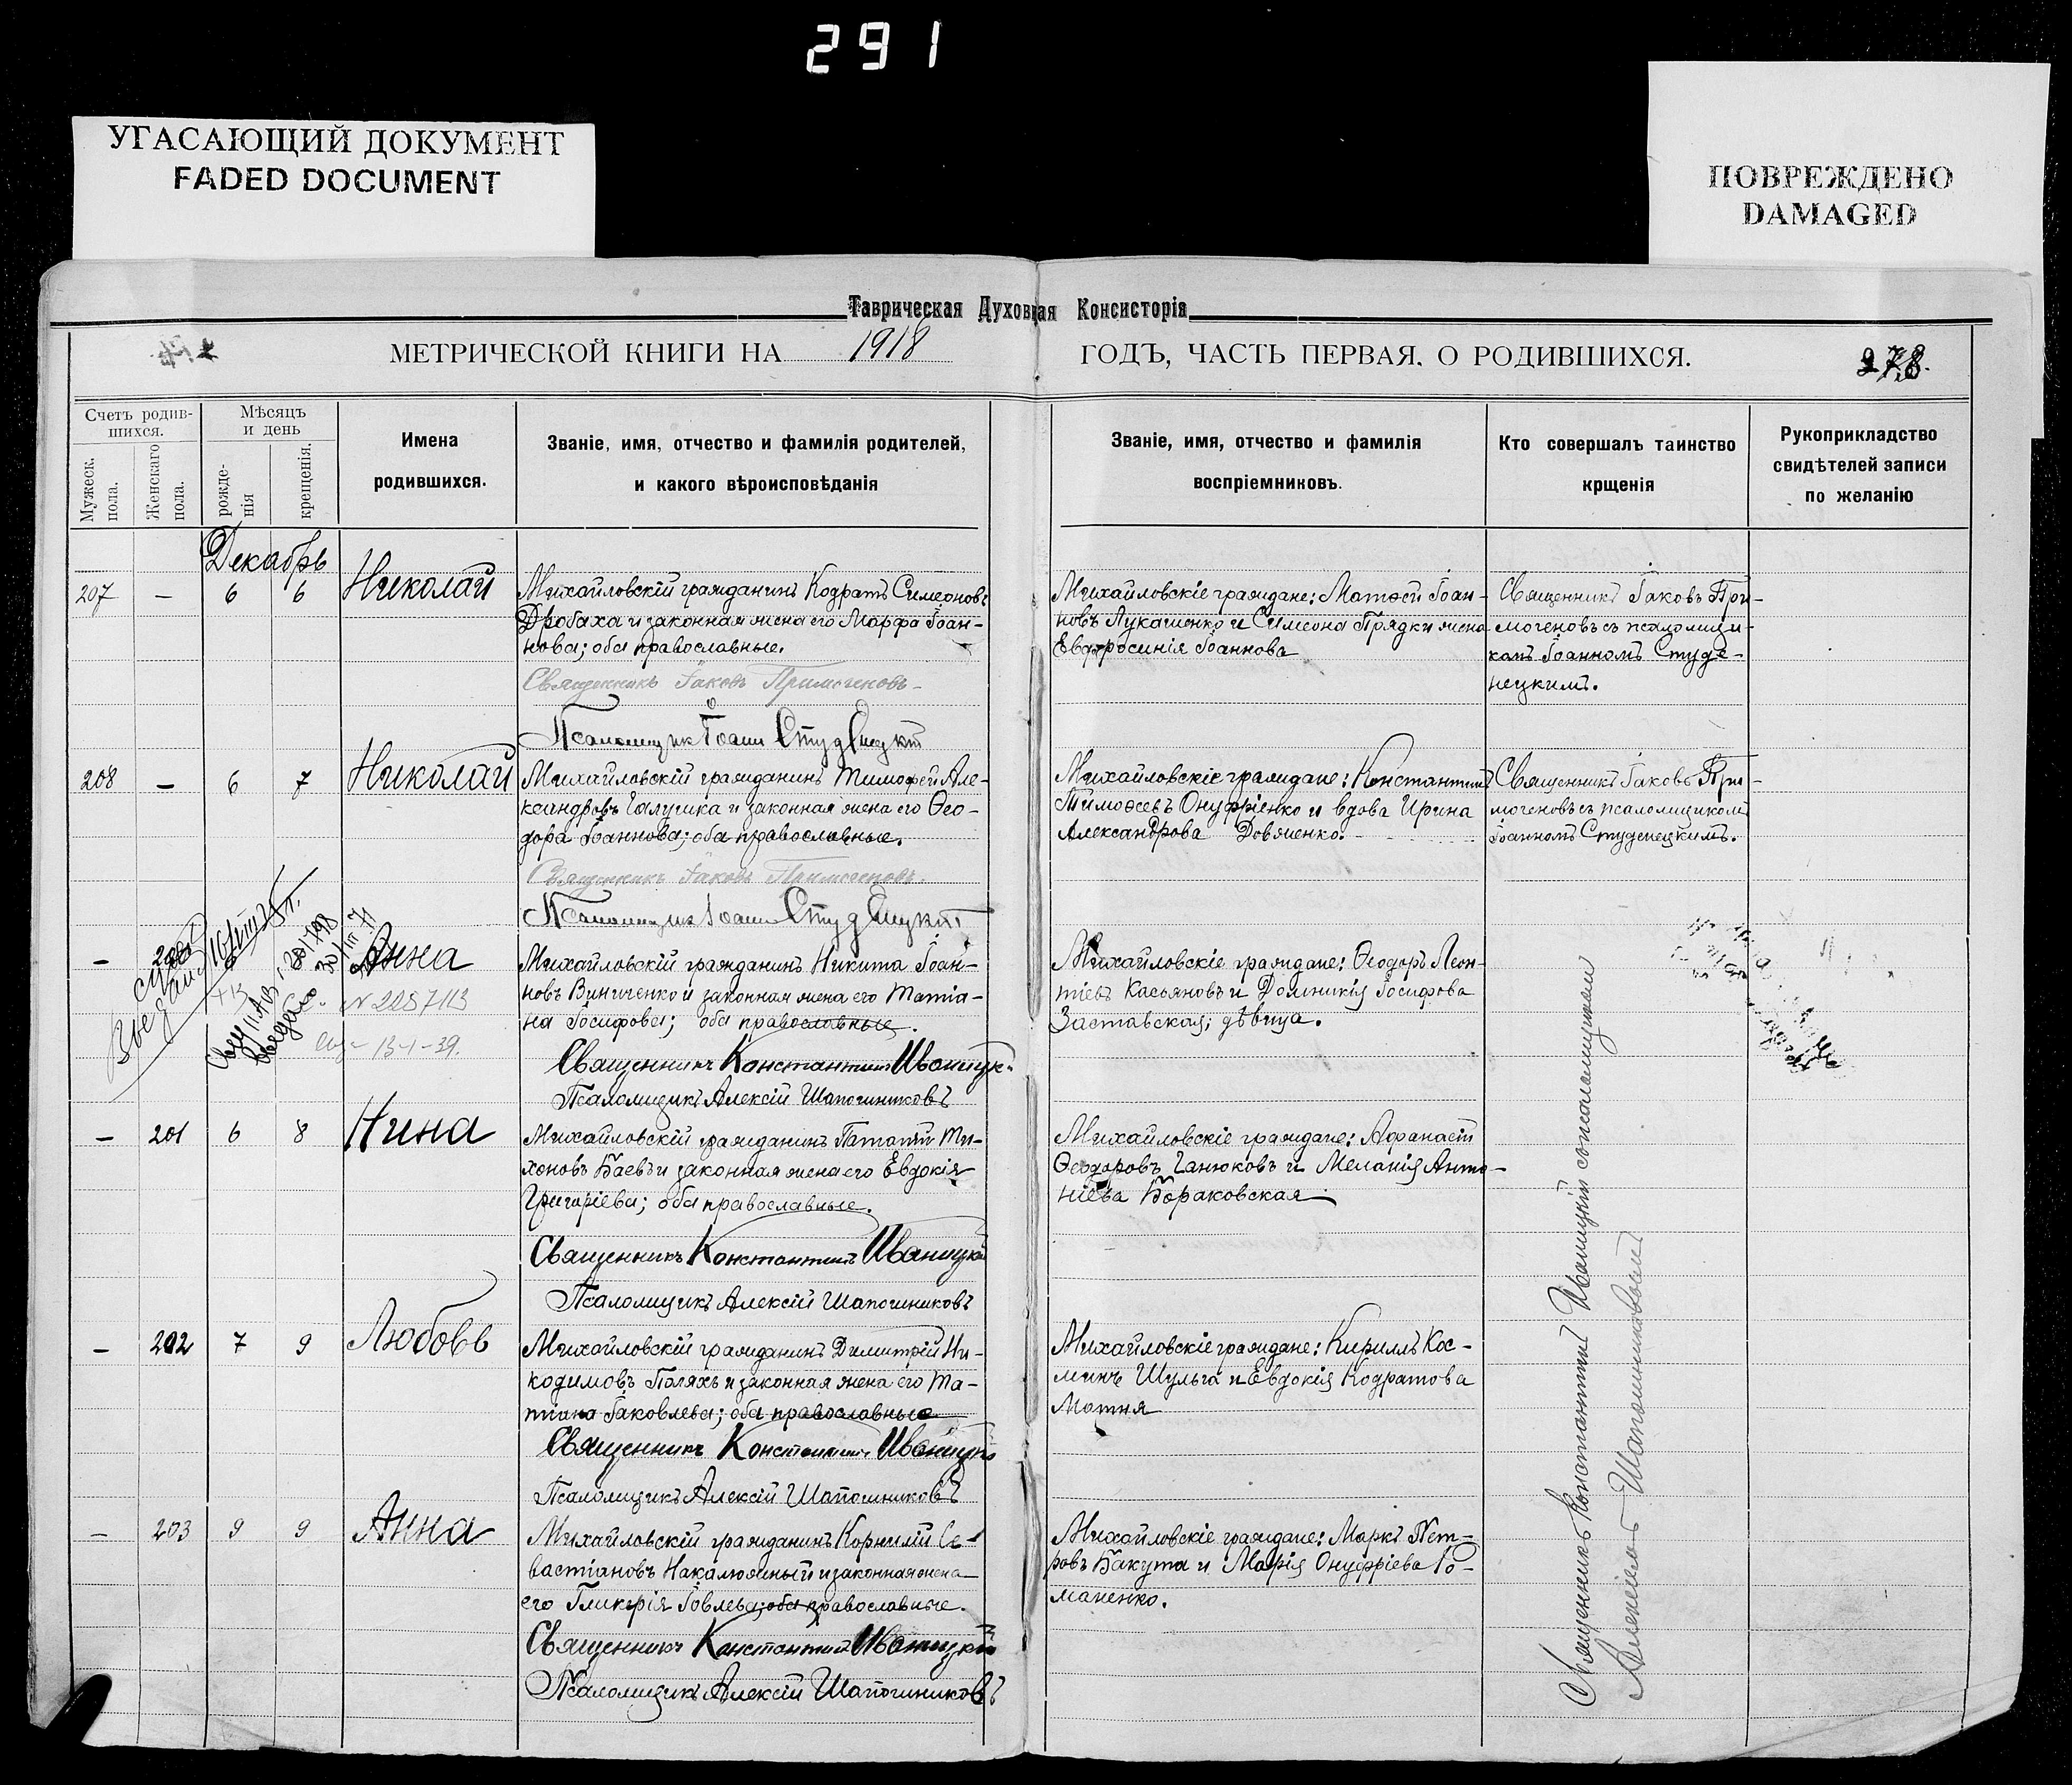 291
УГАСАЮЩИЙ ДОКУМЕНТ
FADED DOCUMENT
ПОВРЕЖДЕНО
DAMAGED
Таврическая Духовная Консисторія
МЕТРИЧЕСКОЙ КНИГИ НА 1918 ГОДЪ, ЧАСТЬ ПЕРВАЯ, О РОДИВШИХСЯ.
278.
Счетъ родив-
шихся.
Мужеск. пола.
Женскаго пола.
Мѣсяцъ
и день
рожде-
нія
крещенія.
Имена
родившихся.
Званіе, имя, отчество и фамилія родителей,
и какого вѣроисповѣданія
Званіе, имя, отчество и фамилія
воспріемниковъ.
Кто совершалъ таинство
крщенія
Рукоприкладство
свидѣтелей записи
по желанію
Декабрь
207 — 6 6 Николай
Михайловскій гражданинъ Кодратъ Симеоновъ
Дробаха и законная жена его Марфа Іоан-
нова; оба православные.
Священникъ Іаковъ Примогеновъ
Псаломщикъ Іоаннъ Студенецкій
Михайловскіе граждане: Матѳей Іоан-
новъ Лукашенко и Симеона Прядки жена
Евфросинія Іоаннова
Священникъ Іаковъ При-
могеновъ съ псаломщи-
комъ Іоанномъ Студе-
нецкимъ.
208 — 6 7 Николай
Михайловскій гражданинъ Тимофей Але-
ксандровъ Галушка и законная жена его Ѳео-
дора Іоаннова; оба православные.
Священникъ Іаковъ Примогеновъ.
Псаломщикъ Іоаннъ Студенецкій
Михайловскіе граждане: Константинъ
Тимоѳеевъ Онуфріенко и вдова Ирина
Александрова Довженко.
Священникъ Іаковъ При-
могеновъ съ псаломщикомъ
Іоанномъ Студенецкимъ.
— Анна
N 2057113
13-1-39.
Михайловскій гражданинъ Никита Іоан-
новъ Винниченко и законная жена его Татіа-
на Іосифова; оба православные.
Священникъ Константинъ Иваницкій
Псаломщикъ Алексій Шапошниковъ
Михайловскіе граждане: Ѳеодоръ Леон-
тіевъ Касьяновъ и Домникія Іосифова
Заставская; дѣвица.
— 201 6 8 Нина
Михайловскій гражданинъ Ти-
хоновъ Баевъ и законная жена его Евдокія
Григоріева; оба православные.
Священникъ Константинъ Иваницкій
Псаломщикъ Алексій Шапошниковъ
Михайловскіе граждане: Афанасій
Ѳеодоровъ Ганюковъ и Меланія Анто-
ніева Бораковская
— 202 7 9 Любовь
Михайловскій гражданинъ Димитрій Ни-
кодимовъ Поляхъ и законная жена его Та-
тіана Іаковлева; оба православные
Священникъ Константинъ Иваницкій
Псаломщикъ Алексій Шапошниковъ
Михайловскіе граждане: Кириллъ Кос-
минъ Шульга и Евдокія Кодратова
Мотня
— 203 9 9 Анна
Михайловскій гражданинъ Корнилій Се-
вастіановъ Накалюжный и законная жена
его Гликерія Іовлева; оба православные.
Священникъ Константинъ Иваницкій
Псаломщикъ Алексій Шапошниковъ
Михайловскіе граждане: Маркъ Пет-
ровъ Бакута и Марія Онуфріева Ро-
маненко.
Священникъ Константинъ Иваницкій съ псаломщикомъ
Алексіемъ Шапошниковымъ